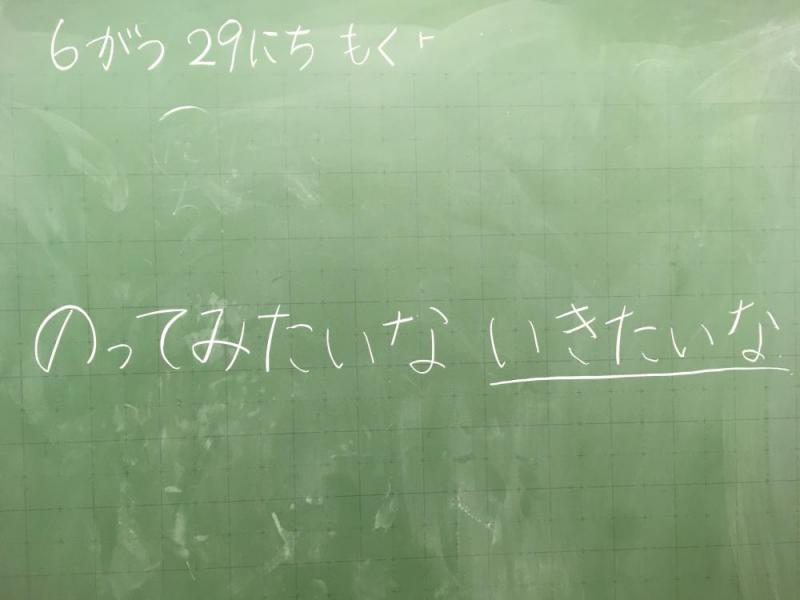 6がつ 29にち もく
のってみたいな いきたいな